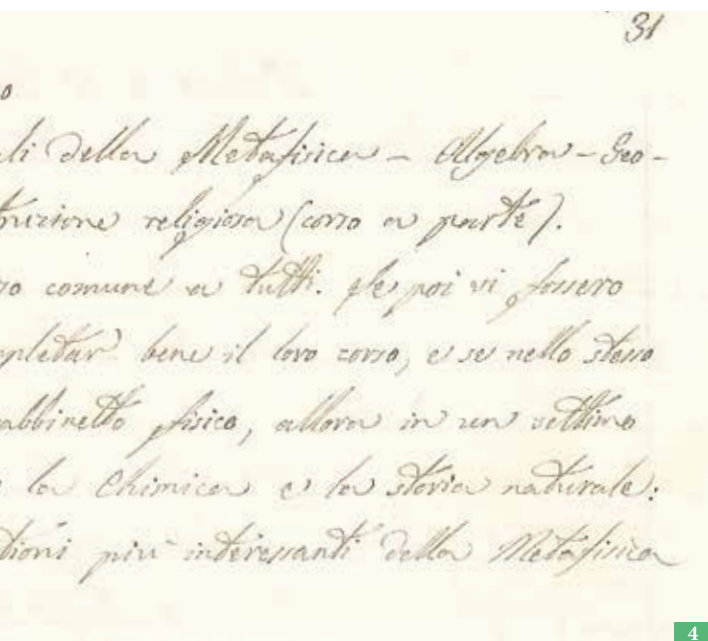 31
o
li della Metafisica - Algebra - Geo-
truzione religiosa (corso a parte).
so comune a tutti. Se poi vi fossero
pletar bene il loro corso, e se nello stesso
abbinetto fisico, allora in un settimo
la Chimica e la storia naturale:
tioni più interessanti della Metafisica
4